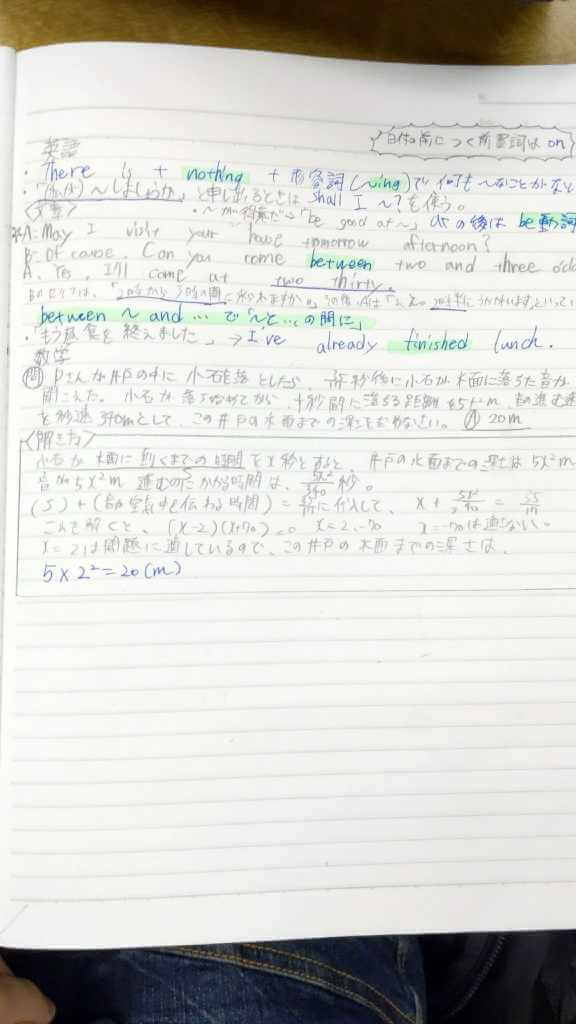 英語
日付の前につく前置詞は on
・There is + nothing + 形容詞(~ing)で「何も~なことがない
・「(私が)~しましょうか。」と申し出るときは shall I ~?を使う。
<文章> ・~が得意だ→「be good at ~」 atの後は be動詞
A: May I visit your house tomorrow afternoon?
B: Of course. Can you come between two and three o'clo
A: Yes. I'll come at two thirty.
Bのセリフは、「2時から3時の間に来られますか。」
between ~ and … で「~と…の間に」
・「もう昼食を終えました」→ I've already finished lunch.
数学
問 Pさんが井戸の中に小石を落としたら、 秒後に小石が水面に落ちた音が
聞こえた。小石が落ち始めてから、x秒間に落ちる距離を5x²m、音の進む速
を秒速340mとして、この井戸の水面までの深さを求めなさい。 A 20m
<解き方>
小石が水面に着くまでの時間をx秒とすると、井戸の水面までの深さは5x²m
音が5x²m進むのにかかる時間は、5x²/340秒。
に代入して、 x + 5x²/340 = 35/17
これを解くと、(x-2)(x+70)=0 x=2,-70 x=-70は適さない。
x=2は問題に適しているので、この井戸の水面までの深さは、
5×2²=20(m)